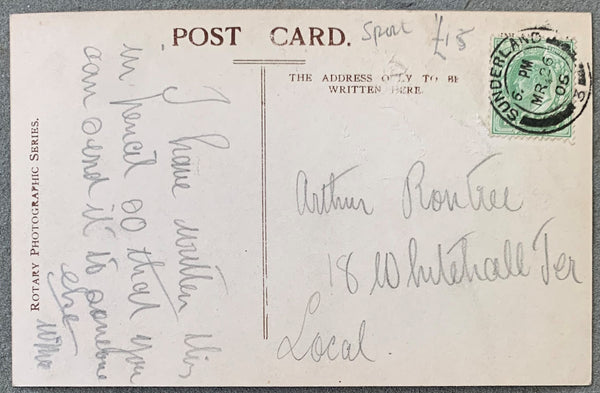 POST CARD.
Sport £15
THE ADDRESS ONLY TO BE
WRITTEN HERE.
SUNDERLAND
6 PM
MR 26
05
3
ROTARY PHOTOGRAPHIC SERIES.
I have written this
in pencil so that you
can send it to someone
else
Arthur Rontree
18 Whitehall Ter
Local